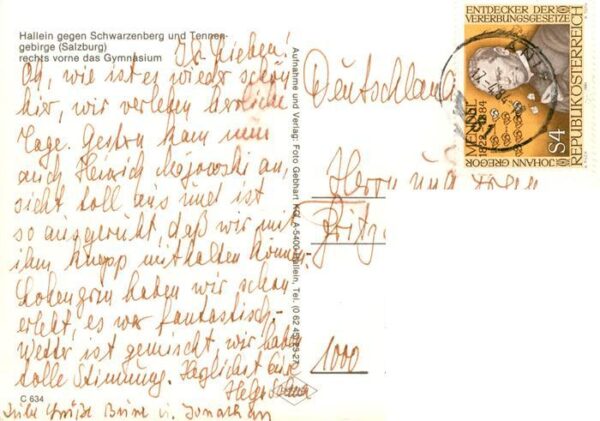 Hallein gegen Schwarzenberg und Tennen-
gebirge (Salzburg)
rechts vorne das Gymnasium
Ihr Lieben!
Oh, wie ist es wieder schön
hier, wir verleben herrliche
Tage. Gestern kam nun
auch Heinrich an,
sieht toll aus und ist
so ausgeruht, daß wir mit
ihm knapp mithalten können.
Lohengrin haben wir schon
erlebt, es war fantastisch
Wetter ist gemischt, wir haben
tolle Stimmung. Herzlichst Eure
Helga
C 634
Liebe Grüße
Aufnahme und Verlag: Foto Gebhart KG, A-5400 Hallein, Tel. (0 62 45)
Deutschland
Herrn und Frau
Fritz
1000
ENTDECKER DER
VERERBUNGSGESETZE
JOHANN GREGOR
MENDEL
1822 1884
S4
REPUBLIK ÖSTERREICH